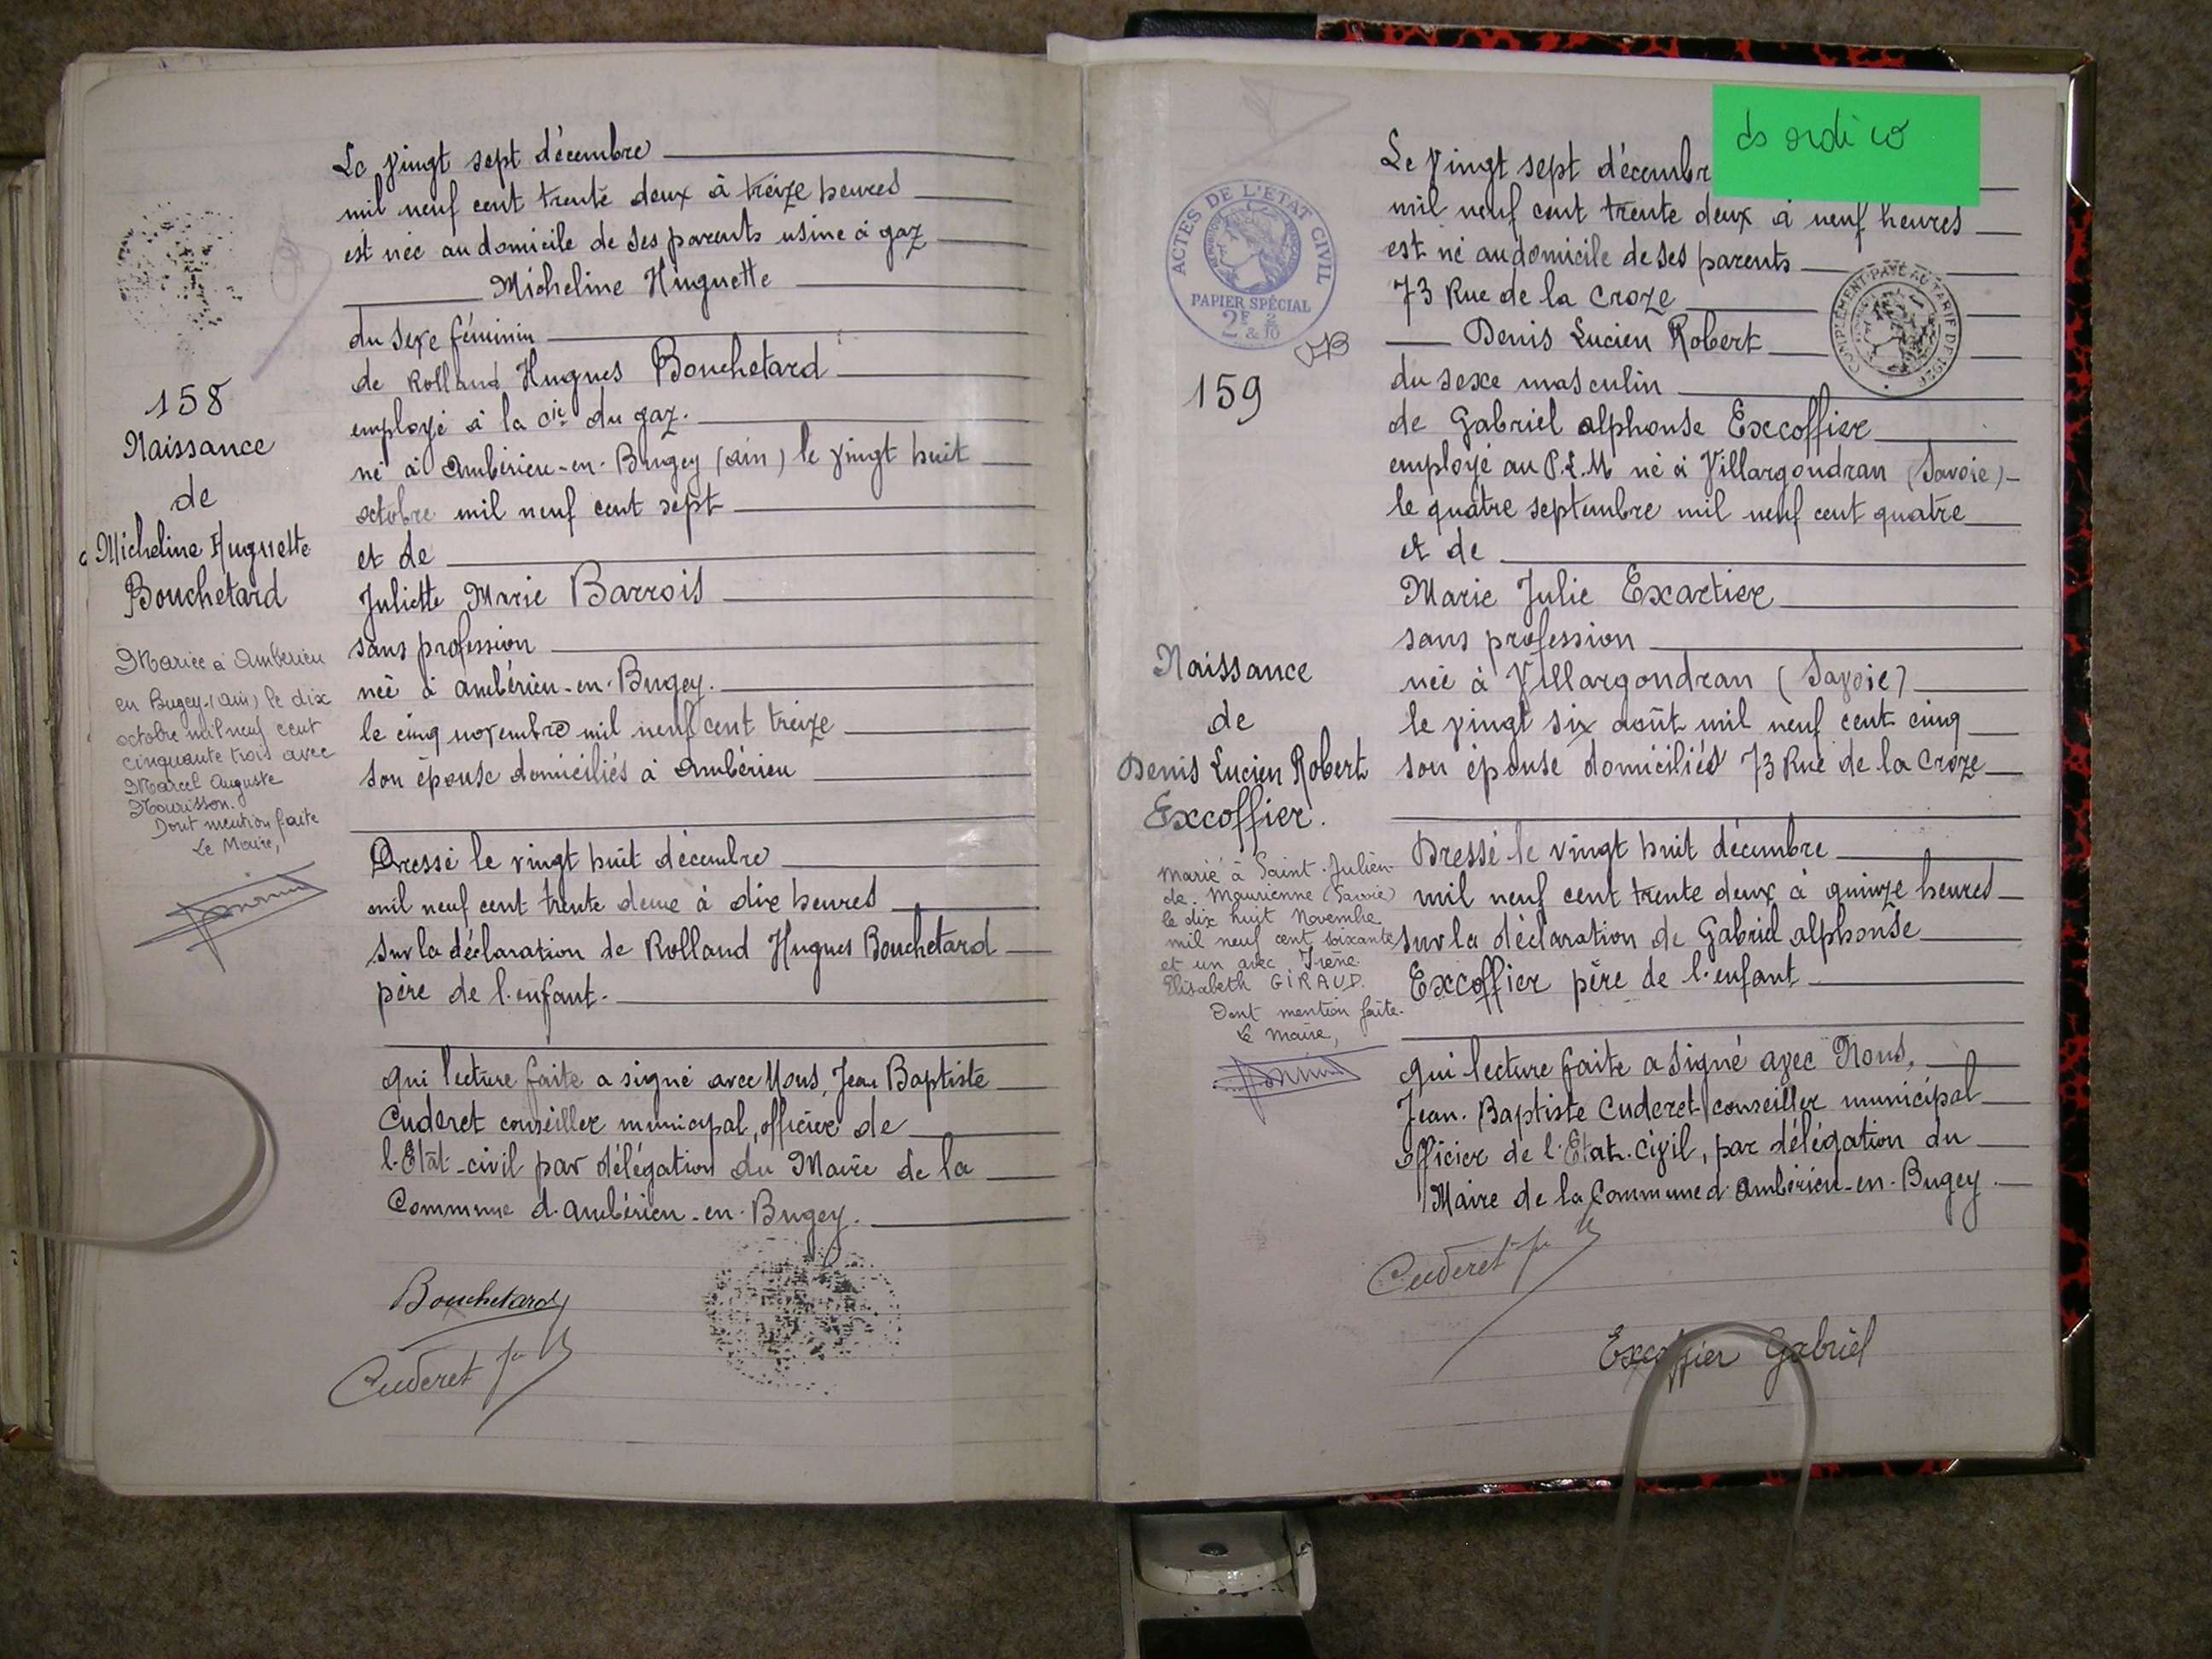 158
Naissance
de
Micheline Huguette
Bouchetard
Mariée à Ambérieu
en Bugey (Ain) le dix
octobre mil neuf cent
cinquante trois avec
Marcel Auguste
Mourisson.
Dont mention faite
Le Maire,
Le vingt sept décembre
mil neuf cent trente deux à treize heures
est née au domicile de ses parents usine à gaz
Micheline Huguette
du sexe féminin
de Rolland Hugues Bouchetard
employé à la Cie du gaz.
né à Ambérieu-en-Bugey (ain) le vingt huit
octobre mil neuf cent sept
et de
Juliette Marie Barrois
sans profession
née à ambérieu-en-Bugey.
le cinq novembre mil neuf cent treize
son épouse domiciliés à Ambérieu
Dressé le vingt huit décembre
mil neuf cent trente deux à dix heures
sur la déclaration de Rolland Hugues Bouchetard
père de l'enfant.
qui lecture faite a signé avec Nous, Jean Baptiste
Cuderet conseiller municipal, officier de
l'Etat-civil par délégation du Maire de la
Commune d'ambérieu-en-Bugey.
Bouchetard
Cuderet
ACTES DE L'ETAT CIVIL
PAPIER SPÉCIAL
2F & 2/10
159
Naissance
de
Denis Lucien Robert
Excoffier.
Marié à Saint-Julien-
de-Maurienne (Savoie)
le dix huit Novembre
mil neuf cent soixante
et un avec Irène
Elisabeth GIRAUD.
Dont mention faite.
Le Maire,
ds ordi
Le vingt sept décembr
mil neuf cent trente deux à neuf heures
est né au domicile de ses parents
73 Rue de la Croze
Denis Lucien Robert
COMPLÉMENT PAYÉ AU TARIF DE 1926
du sexe masculin
de Gabriel alphonse Excoffier
employé au P.L.M né à Villargondran (Savoie)
le quatre septembre mil neuf cent quatre
et de
Marie Julie Exartier
sans profession
née à Villargondran (Savoie)
le vingt six août mil neuf cent cinq
son épouse domiciliés 73 Rue de la Croze
Dressé le vingt huit décembre
mil neuf cent trente deux à quinze heures
sur la déclaration de Gabriel alphonse
Excoffier père de l'enfant
qui lecture faite a signé avec Nous,
Jean-Baptiste Cuderet conseiller municipal
officier de l'Etat-civil, par délégation du
Maire de la Commune d'Ambérieu-en-Bugey.
Cuderet
Excoffier Gabriel